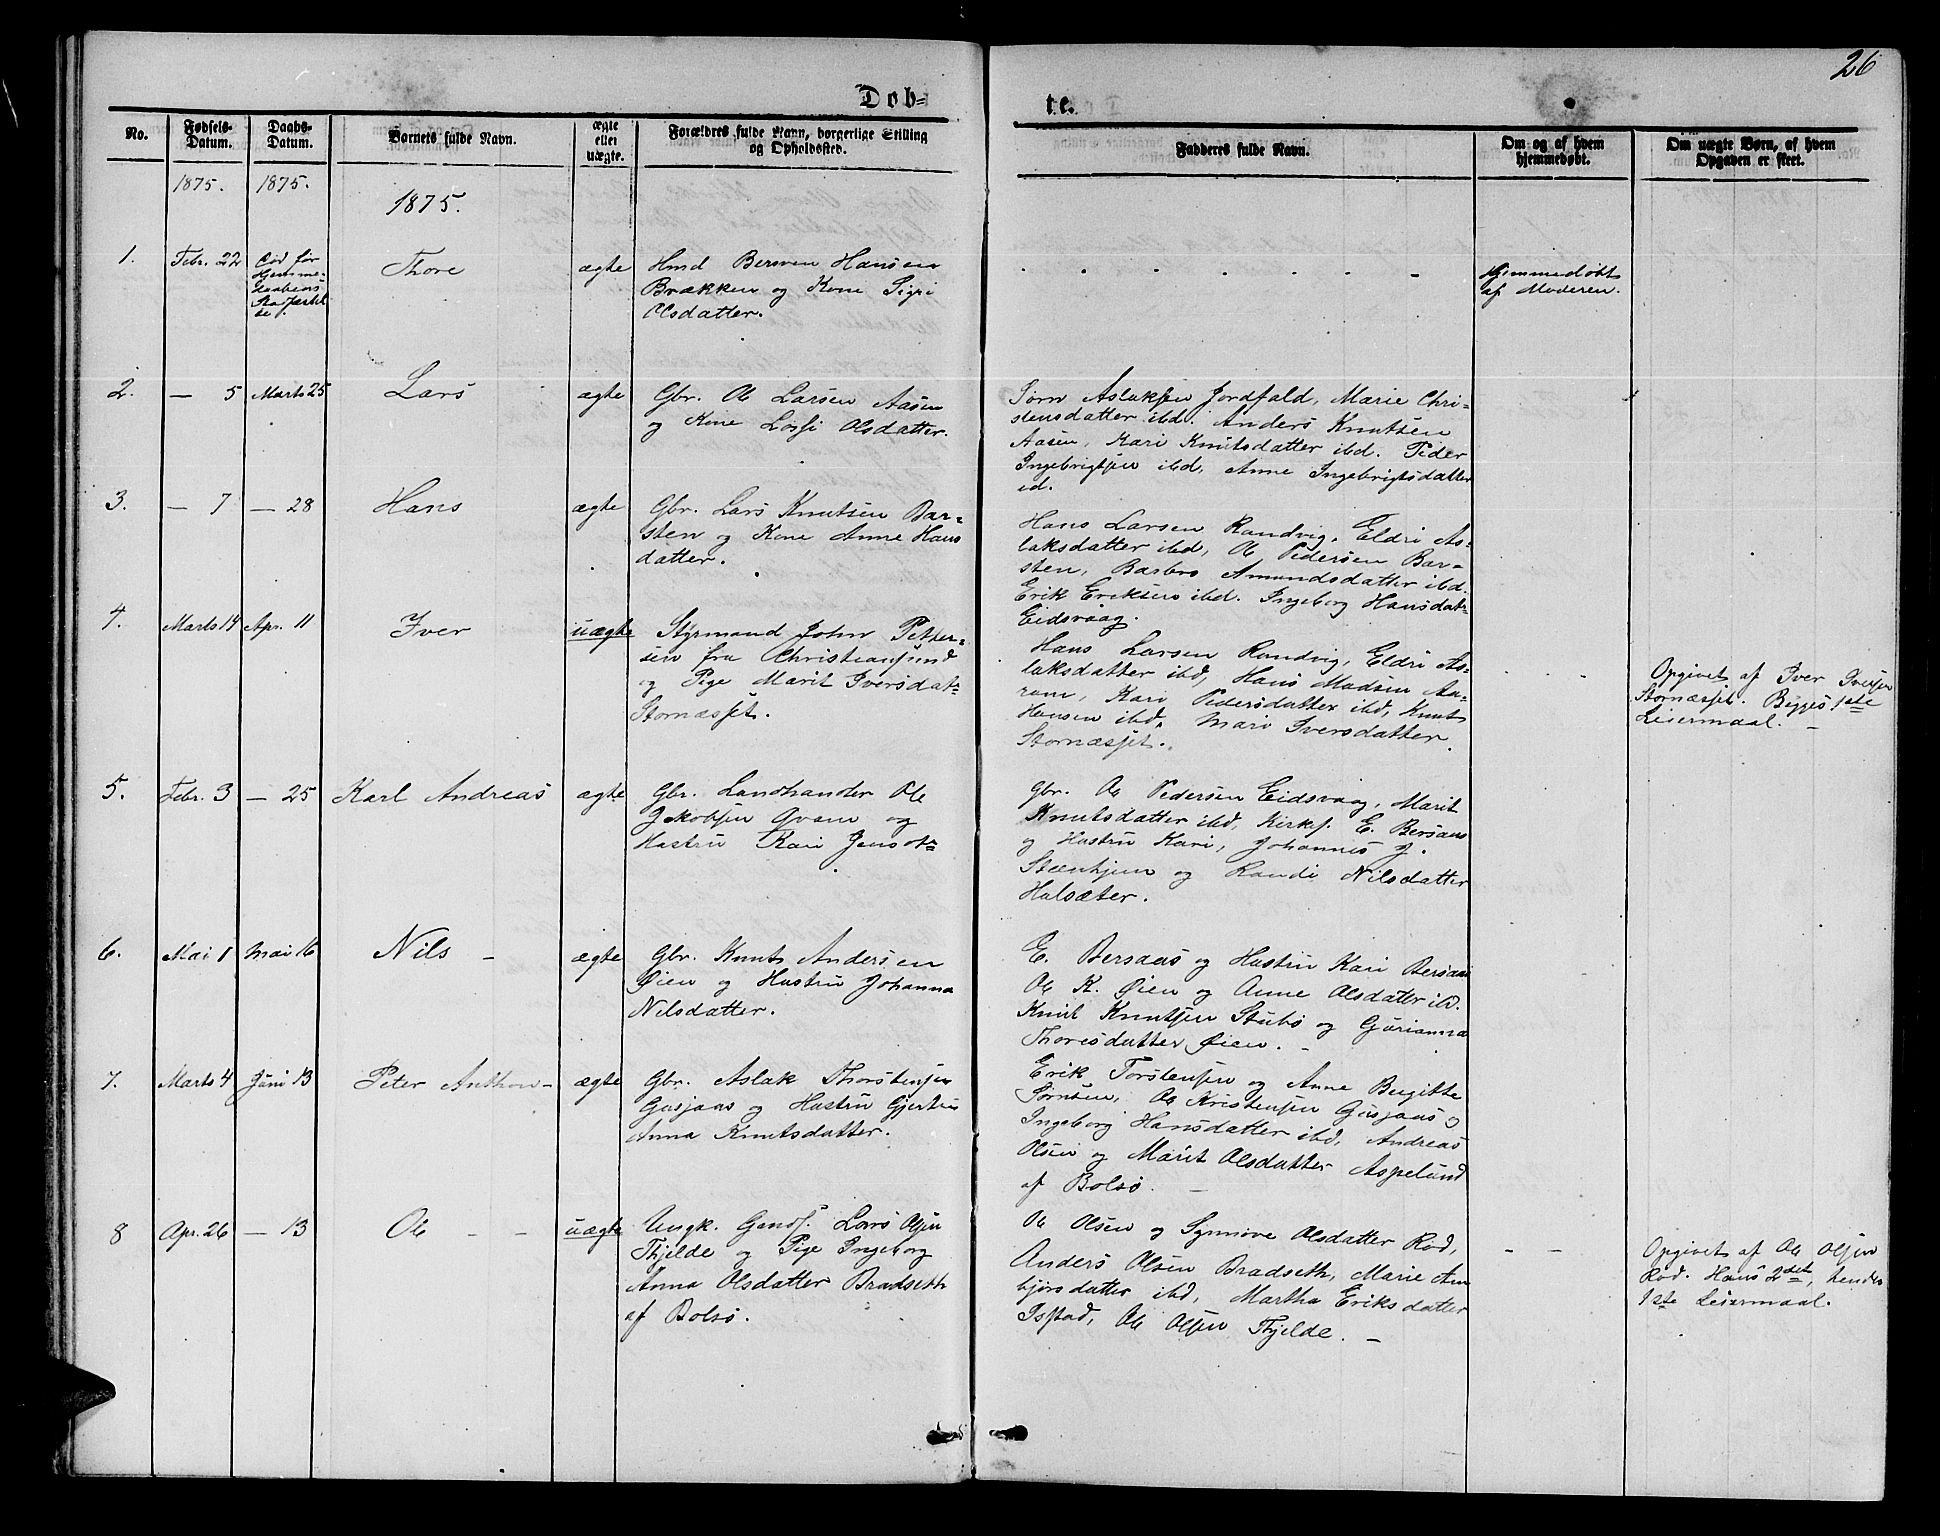 26
Døb=
te.
No.
Fødsels-Datum.
Daabs-Datum.
Barnets fulde Navn.
ægte eller uægte.
Forældres fulde Navn, borgerlige Stilling og Opholdssted.
Fadderes fulde Navn.
Om og af hvem hjemmedøbt.
Om uægte Børn, af hvem Opgaven er skeet.
1875.
1875.
1875.
1.
Febr. 22
Død før
Hjemme-
daabens
Stadfæstel
se.
Thore
ægte
Hmd Hansen
Brækken og Kone Sigri
Olsdatter.
Hjemmedøbt
af Moderen.
2.
— 5
Marts 25
Lars
ægte
Gbr. Ole Larsen Aasen
og Kone Olsdatter.
Sørn Aslaksen Jordfald, Marie Chri-
stensdatter ibd. Anders Knutsen
Aasen, Kari Knutsdatter ibd. Peder
Ingebrigtsen ibd, Anne Ingebrigtsdatter
3.
— 7
— 28
Hans
ægte
Gbr. Lars Knutsen Bar=
sten og Kone Anne Hans
datter.
Hans Larsen Randvig, Eldri As-
laksdatter ibd, Ole Pedersen Bar-
sten, Barbro Amundsdatter ibd.
Erik Eriksen ibd. Ingeborg Hansdatr
Eidsvaag.
4.
Marts 14
Apr. 11
Iver
uægte
Styrmand John Petter-
sen fra Christiansund
og Pige Marit Iversdatr
Stornæsset.
Hans Larsen Randvig, Eldri As-
laksdatter ibd, Hans Madsen Aa-
ram, Kari Pedersdatter ibd, Knut
Hansen ibd, Mari Iversdatter
Stornæsset.
Opgivet af Iver Iversen
Stornæsset. Begges 1ste
Leiermaal. —
5.
Febr. 3
— 25
Karl Andreas
ægte
Gbr. Landhandler Ole
Jakobsen og
Hustru Kari Jensdr
Gbr. Ole Pedersen Eidsvaag, Marit
Knutsdatter ibd, Kirks. E. Bersaas
og Hustru Kari, Johannes J.
og Randi Nilsdatter
Halsæter.
6.
Mai 1
Mai 16
Nils —
ægte
Gbr. Knut Andersen
Øien og Hustru Johanna
Nilsdatter.
E. Bersaas og Hustru Kari Bersaas
Ole K. Øien og Anne Olsdatter ibd.
Knut Knutsen Stubø og Gurianna
Thoresdatter Øien. —
7.
Marts 4
Juni 13
Peter Anthon —
ægte
Gbr. Aslak Thorstensen
Gusjaas og Hustru Gjertru
Anna Knutsdatter.
Erik Torstensen og Anne Birgitte
Sørnsen, Ole Kristensen Gusjaas og
Ingeborg Hansdatter ibd, Andreas
Olsen og Marit Olsdatter Aspelund
af Bolsø. —
8
Apr. 26
— 13
Ole — —
uægte
Ungk. Lars Olsen
Thjelde og Pige Ingeborg
Anna Olsdatter Bradseth
af Bolsø.
Ole Olsen og Synnøve Olsdatter Rød,
Anders Olsen Bradseth, Marie Am
bjørsdatter ibd, Martha Eriksdatter
Istad, Ole Olsen Thjelde. —
— —
Opgivet af Ole Olsen
Rød. Hans 2det, hendes
1ste Leiermaal.